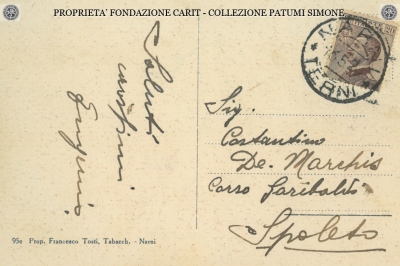 PROPRIETA' FONDAZIONE CARIT - COLLEZIONE PATUMI SIMONE
Saluti
carissimi
Eugenio
NARNI
TERNI
Sig.
Costantino
De. Marchis
Corso Garibaldi
Spoleto
95e Prop. Francesco Tosti, Tabacch. - Narni